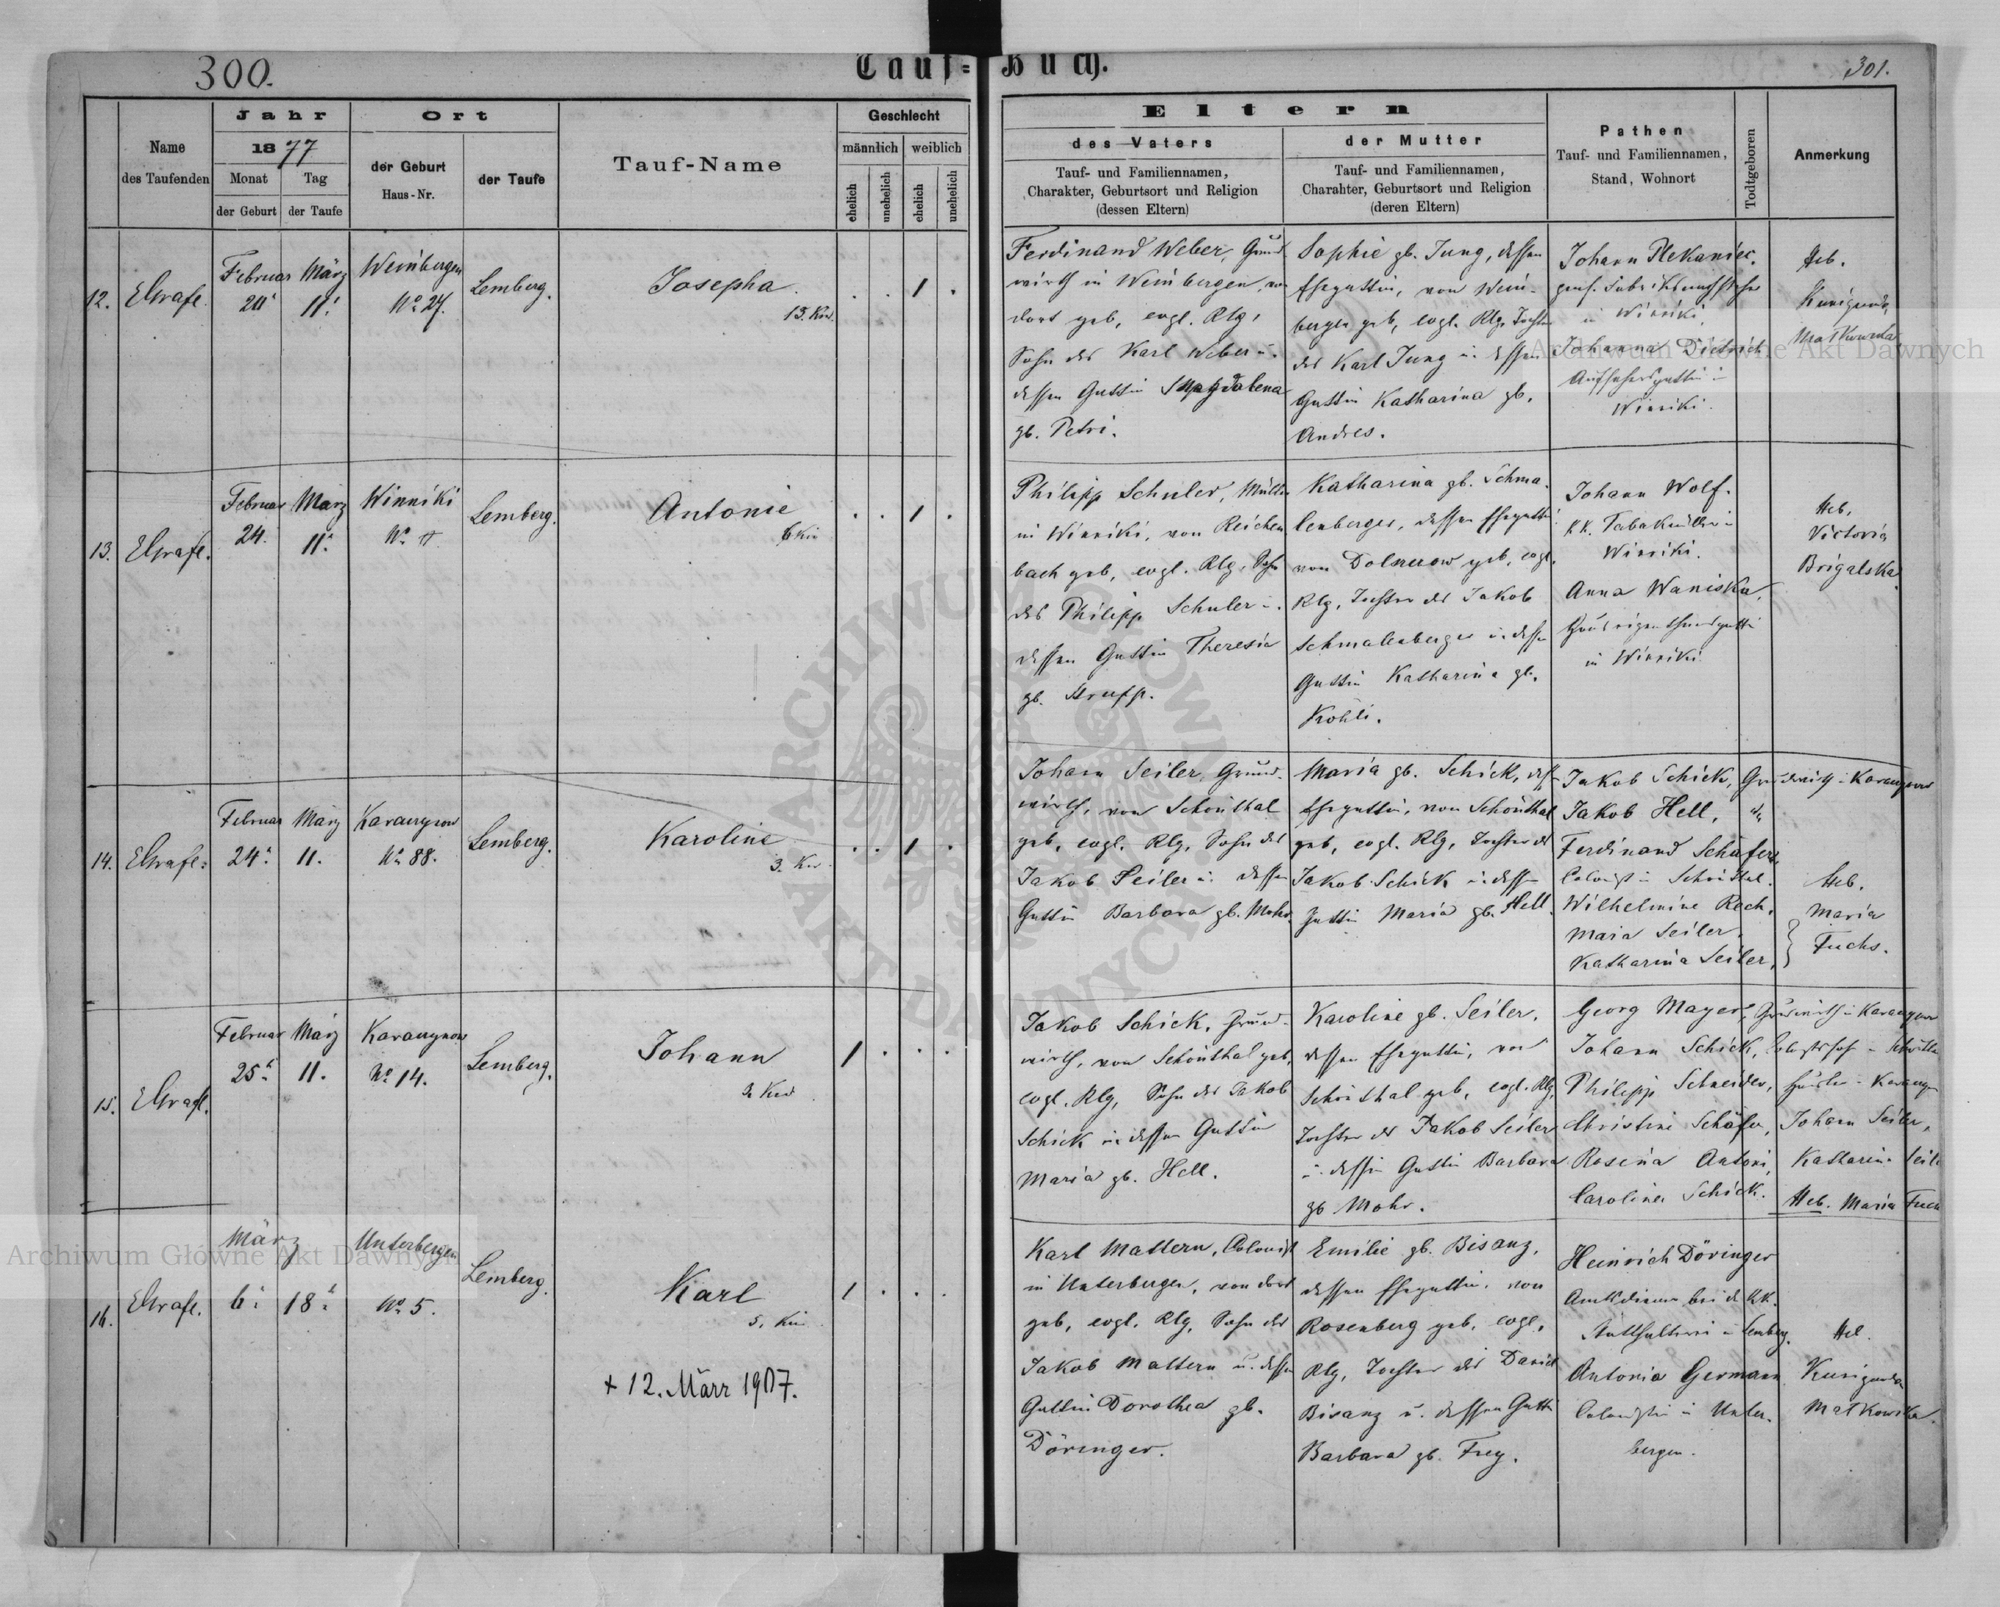 300.
Tauf=
Buch.
301.
Name
des Taufenden
Jahr
1877
Monat
Tag
der Geburt
der Taufe
Ort
der Geburt
Haus-Nr.
der Taufe
Tauf-Name
Geschlecht
männlich
weiblich
ehelich
unehelich
ehelich
unehelich
Eltern
des Vaters
Tauf- und Familiennamen,
Charakter, Geburtsort und Religion
(dessen Eltern)
der Mutter
Tauf- und Familiennamen,
Charahter, Geburtsort und Religion
(deren Eltern)
Pathen
Tauf- und Familiennamen,
Stand, Wohnort
Todtgeboren
Anmerkung
12.
EGrafe.
Februar
20
März
11.
Weinbergen
No 27.
Lemberg.
Josepha.
13. Kin.
Ferdinand Weber, Grund
wirth in Weinbergen, von
dort geb, evgl. Rlg,
Sohn des Karl Weber u.
dessen Gattin Magdalena
gb. Petri.
Sophie gb. Jung, dessen
Ehegattin, von Wein-
bergen geb, evgl. Rlg, Tochter
des Karl Jung u. dessen
Gattin Katharina gb.
Andres.
Johann Plekaniec,
in Winniki,
Johanna Dietrich
Aufsehersgattin in
Winniki.
Heb.
Kunigunda
Matkowska
13.
EGrafe.
Februar
24.
März
11.
Winniki
No
Lemberg.
Antonie
6 Kin
Philipp Schuler, Müller
in Winniki, von Reichen
bach geb, evgl. Rlg, Sohn
des Philipp Schuler u.
dessen Gattin Theresia
gb.
Katharina gb. Schma-
lenberger, dessen Ehegattin
von geb, evgl.
Rlg, Tochter des Jakob
Schmalenberger u. dessen
Gattin Katharina gb.
Kohli.
Johann Wolf.
KK. in
Winniki.
Anna Waniska,
in Winniki
Heb.
Victoria
Brigalska
14.
EGrafe.
Februar
24.
März
11.
Karaczynow
No 88.
Lemberg.
Karoline
3. Kin.
Johann Seiler, Grund-
wirth, von Schönthal
geb, evgl. Rlg, Sohn des
Jakob Seiler u. dessen
Gattin Barbara gb. Mohr.
Maria gb. Schick, dessen
Ehegattin, von Schönthal
geb, evgl. Rlg, Tochter des
Jakob Schick u. dessen
Gattin Maria gb. Hell.
Jakob Schick, Grundwirth in Karaczynow
Jakob Hell,
Ferdinand Schäfer,
Colonist in Schönthal.
Wilhelmine Rech,
Maria Seiler,
Katharina Seiler,
Heb.
Maria
Fuchs.
15.
EGrafe.
Februar
25.
März
11.
Karaczynow
No 14.
Lemberg.
Johann
2 Kin
Jakob Schick, Grund-
wirth, von Schönthal geb,
evgl. Rlg, Sohn des Jakob
Schick u. dessen Gattin
Maria gb. Hell.
Karoline gb. Seiler,
dessen Ehegattin, von
Schönthal geb, evgl. Rlg,
Tochter des Jakob Seiler
u. dessen Gattin Barbara
gb Mohr.
Georg Mayer, Grundwirth in Karaczynow
Johann Schick,
Philipp Schneider,
Christine Schäfer, Johann Seiler,
Rosina Antoni, Katharina Seiler
Carolina Schick. Heb. Maria Fuchs
16.
EGrafe.
März
6.
18.
Unterbergen
No 5.
Lemberg.
Karl
5. Kin
+ 12. März 1907.
Karl Mattern, Colonist
in Unterbergen, von dort
geb, evgl. Rlg, Sohn des
Jakob Mattern u. dessen
Gattin Dorothea gb.
Döringer.
Emilie gb. Bisanz,
dessen Ehegattin, von
Rosenberg geb, evgl.
Rlg, Tochter des David
Bisanz u. dessen Gattin
Barbara gb. Frey.
Heinrich Döringer
Amtsdiener bei d. KK.
Statthalterei in Lemberg.
Antonia Germann
Colonistin in Unter-
bergen.
Heb.
Kunigunda
Matkowska.
Archiwum Główne Akt Dawnych
Archiwum Główne Akt Dawnych
ARCHIWUM GŁÓWNE AKT DAWNYCH